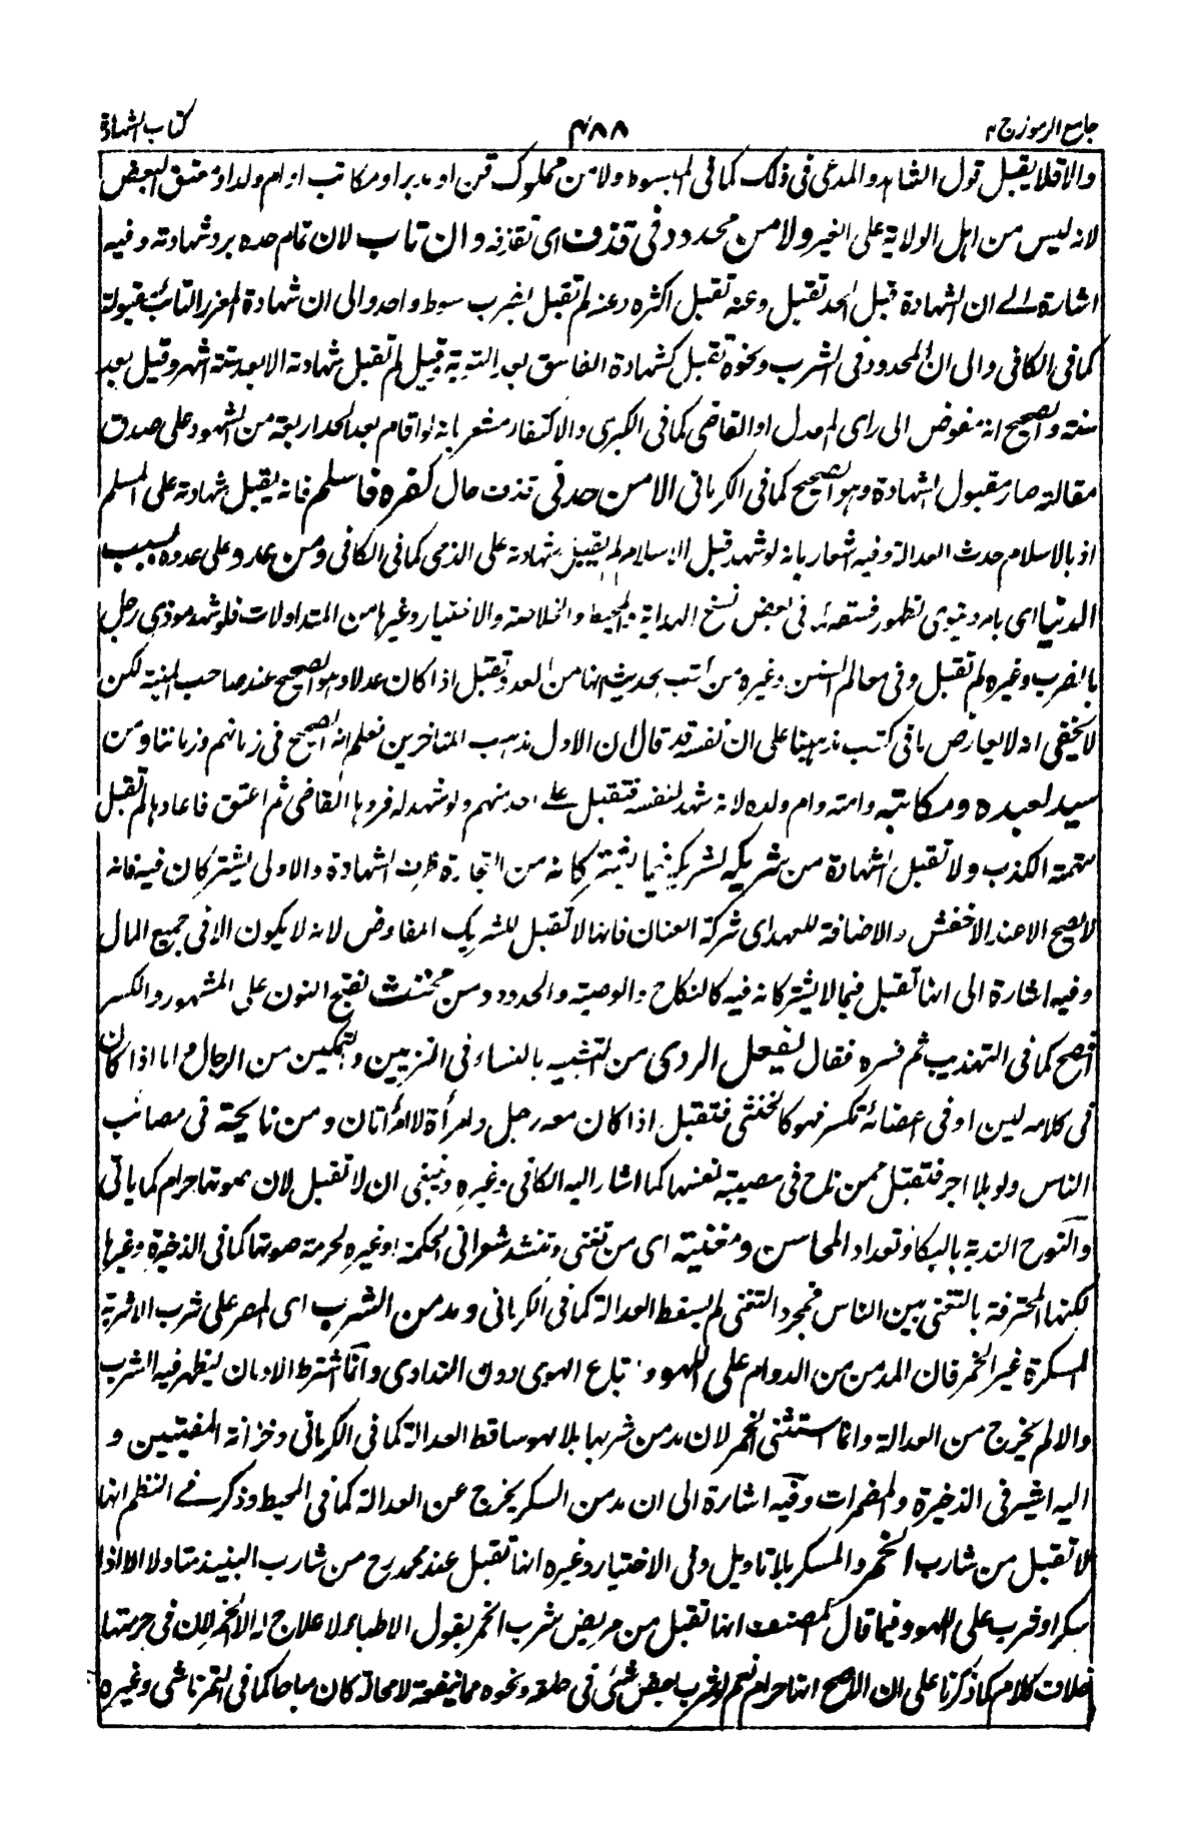 جامع الرموز ج ۲
۴۸۸
كتاب الشهادة
والا فلا يقبل قول الشاهد والمدعى فى ذلك كما فى المبسوط ولا من مملوك قن او مدبر او مكاتب او ام ولد او معتق البعض
لانه ليس من اهل الولاية على الغير ولا من محدود فى قذف اى تقاذفه وان تاب لان تمام حده برد شهادته وفيه
اشارة الے ان الشهادة قبل الحد تقبل وعنه تقبل اكثره وعنه لم تقبل بضرب سوط واحد والى ان شهادة المعزر التائب مقبولة
كما فى الكافى والى ان المحدود فى الشرب ونحوه تقبل كشهادة الفاسق بعد التوبة قيل لم تقبل شهادته الا بعد ستة اشهر وقيل بعد
سنته والصحيح انه مفوض الى راى المعدل او القاضى كما فى الكبرى والاكتفاء مشعر بانه لو اقام بعد الحد اربعة من الشهود على صدق
مقالته صار مقبول الشهادة وهو الصحيح كما فى الكرمانى الا من حد فى قذف حال كفره فاسلم فانه يقبل شهادته على المسلم
اذ بالاسلام حدث العدالة وفيه اشعار بانه لو شهد قبل الاسلام لم يقبل شهادته على الذمى كما فى الكافى ومن عدو على عدوه بسبب
الدنيا اى بامر دنيوى لظهور فسقه فى بعض نسخ الهداية والمحيط والخلاصة والاختيار وغيرها من المتداولات فلو شهد موذى رجل
بالضرب وغيره لم تقبل وفى معالم السنن وغيره من كتب الحديث انها من العدو تقبل اذا كان عدلا وهو الصحيح عند صاحب المنية لكن
لا يخفى انه لا يعارض ما فى كتب مذهبنا على ان نفسه قد قال ان الاول مذهب المتاخرين فعلم انه الصحيح فى زمانهم وزماننا ومن
سيد لعبده ومكاتبه وامته وام ولده لانه شهد لنفسه فتقبل علے احد منهم ولو شهد له فردها القاضى ثم اعتق فاعادها لم تقبل
لتهمة الكذب ولا تقبل الشهادة من شريك لشريكه فيما يشتركانه من التجارة ظرف الشهادة والاولى يشتركان فيه فانه
لا يصح الا عند الاخفش والاضافة للعهد اى شركة العنان فانها لا تقبل للشريك المفاوض لانه لا يكون الا فى جميع المال
وفيه اشارة الى انها تقبل فيما لا يشتركانه فيه كالنكاح والوصية والحدود ومن مخنث بفتح النون على المشهور والكسر
افصح كما فى التهذيب ثم فسره فقال يفعل الردى من التشبيه بالنساء فى التزيين والتمكين من الرجال واما اذا كان
فى كلامه لين او فى اعضائه تكسر فهو كالخنثى فتقبل اذا كان معه رجل وامرأة لا امرأتان ومن نايحة فى مصائب
الناس ولو بلا اجر فتقبل ممن ناح فى مصيبة نفسها كما اشار اليه الكافى وغيره وينبغى ان لا تقبل لان صوتها حرام كما ياتى
والنوح الندبة بالبكاء وتعداد المحاسن ومغنية اى من تغنى وتنشد شعرا فى الحكمة او غيره لحرمة صوتها كما فى الذخيرة وغيرها
لكنها المحترفة بالتغنى بين الناس فمجرد التغنى لم يسقط العدالة كما فى الكرمانى ومدمن الشرب اى المصر على شرب الاشربة
المسكرة غير الخمر فان المدمن من الدوام على اللهو واتباع الهوى دون التداوى وانما اشترط الادمان ليظهر فيه الشرب
والا لم يخرج من العدالة وانما استثنى الخمر لان مدمن شربها بلا لهو ساقط العدالة كما فى الكرمانى وخزانة المفتيين و
اليه اشير فى الذخيرة والمضمرات وفيه اشارة الى ان مدمن السكر يخرج عن العدالة كما فى المحيط وذكر فے النظم انها
لا تقبل من شارب الخمر والمسكر بلا تاويل وفى الاختيار وغيره انها تقبل عند محمد رح من شارب النبيذ متاولا الا اذا
سكر او شرب على اللهو وفيما قال المصنف انها تقبل من مريض شرب الخمر بقول الاطباء لا علاج له الا الخمر لان فى حرمتها
خلاف كلام كما ذكرنا على ان الاصح انها حرام نعم لو شرب بعض شئ فى حلقه ونحوه مما ينفعه لا محالة كان مباحا كما فى التمرتاشى وغيره